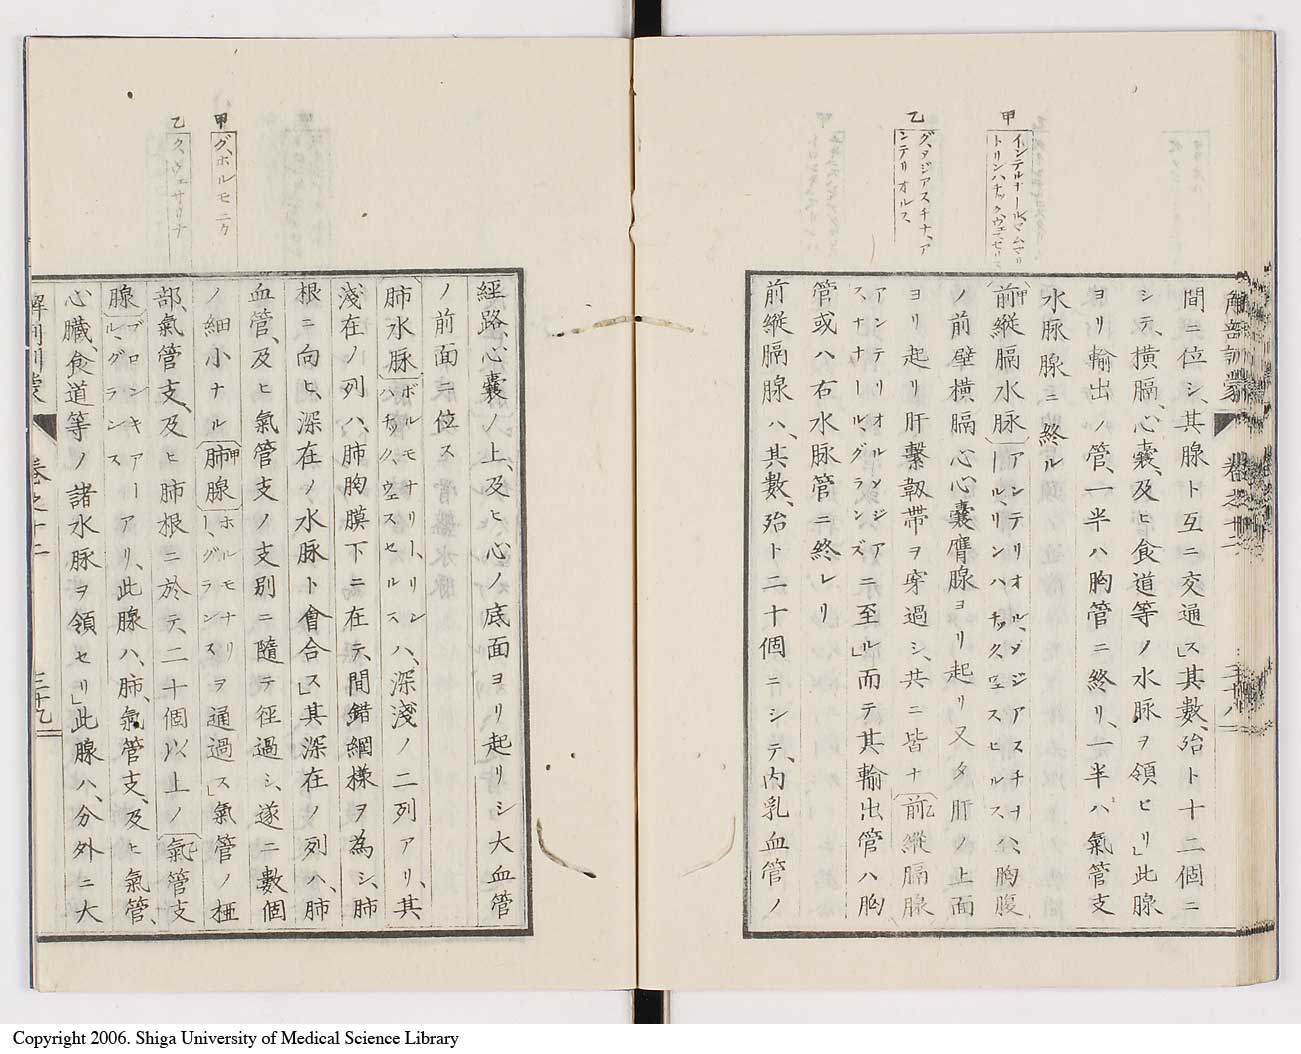 甲
インテルナール、マムマリ
トリンハチック、ヴェセリス
乙
グ、メジアスチナ、ア
シテリオルス
解部訓蒙 卷之十二 三十八
間ニ位シ、其腺ト互ニ交通ス」其數、殆ト十二個ニ
シテ、橫膈、心囊、及ヒ食道等ノ水脉ヲ領ヒリ」此腺
ヨリ輸出ノ管、一半ハ胸管ニ終リ、一半ハ氣管支
水脉腺ニ終ル
前縱膈水脉アンテリオル、メジアスチナール、リンハチック、ヴェスヒルスハ、胸腹
ノ前壁橫膈心心囊膺腺ヨリ起リ又タ肝ノ上面
ヨリ起リ肝繫靱帶ヲ穿過シ、共ニ皆ナ前縱膈腺
アンテリオルメンジアスナナール、グランズニ至ル」而テ其輸出管ハ胸
管或ハ右水脉管ニ終レリ
前縱膈腺ハ、其數、殆ト二十個ニシテ、內乳血管ノ
甲
グ、ホルモニク
乙
ク、ヴェサリナ
經路、心囊ノ上、及ヒ心ノ底面ヨリ起リシ大血管
ノ前面ニ位ス
肺水脉ボルモナリー、リンハチック、ウェスセルスハ、深淺ノ二列アリ、其
淺在ノ列ハ、肺胸膜下ニ在テ、間錯網樣ヲ為シ、肺
根ニ向ヒ、深在ノ水脉ト會合ス」其深在ノ列ハ、肺
血管、及ヒ氣管支ノ支別ニ隨テ徑過シ、遂ニ數個
ノ細小ナル肺腺ホルモナリー、グランスヲ通過ス」氣管ノ椏
部、氣管支、及ヒ肺根ニ於テ、二十個以上ノ氣管支
腺ブロンキアール、グランスアリ、此腺ハ、肺、氣管支、及ヒ氣管、
心臟食道等ノ諸水脉ヲ領セリ」此腺ハ、分外ニ大
卷之十二 三十九
Copyright 2006. Shiga University of Medical Science Library